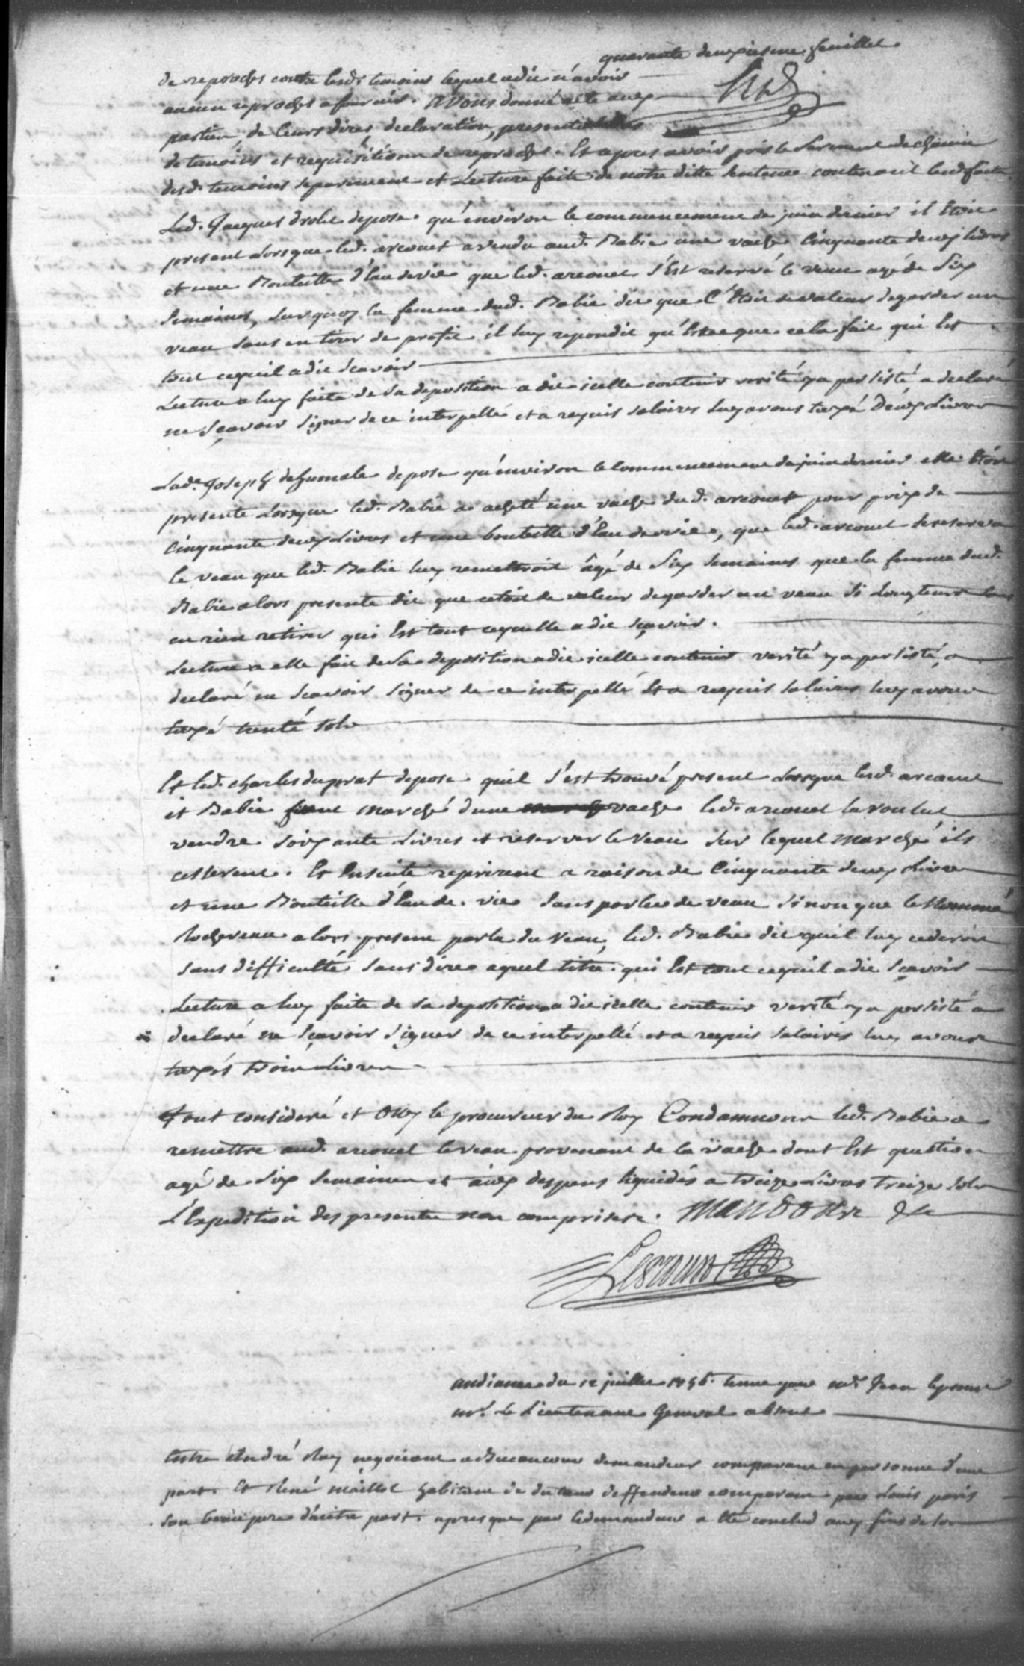 quarante deuxiesme feuillet
de reproches contre lesds temoins lequel a dit n'avoir
aucun reproches a fournir. avons donné acte aux
parties, de leurs dires declaration, presentation
de temoins et requisitionn de reproches. Et apres avoir pris le serment de chacun
desd. temoins separement et Lecture faite de notre ditte sentence contenant lesd faits
Led. Jacques drolet depose qu'environ le commencement de juin dernier il Etoit
present Lorsque led. arcouet a vendu aud. Babie une vache Cinquante deux livres
et une Bouteille d'Eau de vie que led. arcouet s'Est reservé le veau agé de Six
Semaines, Surquoy la femme dud. Babie dit que C'Etoit de valeur de garder un
veau sans en tirer de profit il luy repondit qu'Estceque cela fait qui Est
tout cequil a dit Scavoir
Lecture a luy faite de Sa deposition a dit icelle contenir verité y a persisté a declaré
ne Sçavoir Signer de ce interpellé et a requis Salaires luy avons taxé deux Livres
Lad.e Joseph deHumale depose qu'environ le Commencement de juin dernier elle Etoit
presente Lorsque led. Babie a acheté une vache dud. arcouet pour prix de
Cinquante deux Livres et une bouteille d'Eau de vie, que led. arcouet Se reserva
le veau que led. Babie luy remettroit âgé de Six Semaines que la femme dud.
Babie alors presente dit que cetoit de valeur de garder un veau Si Longtems sans
en rien retirer qui Est tout cequelle a dit Sçavoir.
Lecture a elle fait de Sa deposition a dit icelle contenir verité y a persisté, a
declaré ne Scavoir Signer de ce interpellé Et a requis Salaires luy avons
taxé trente sols
Et led. charles duprat depose quil s'est trouvé present Lorsque lesd. arcouet
et Babie marché d'une vache led. arcouet la voulut
vendre Soixante Livres et reserver le veau Sur lequel marché ils
cesserent. Et Ensuite reprirent a raison de Cinquante deux Livres
et une Bouteille d'Eau de vie Sans parler de veau Sinon que le Nommé
Rochereau alors present parla du Veau, led. Babie dit quil luy cederoit
sans difficulté Sans dire aquel titre. qui Est tout cequil a dit Sçavoir
Lecture a luy faite de sa deposition a dit icelle contenir verité y a persisté a
declaré ne Sçavoir Signer de ce interpellé et a requis Salaires luy avons
taxés trois Livres
Tout consideré et Ouy le procureur du Roy Condamnons led. Babie a
remettre aud. arcouet le veau provenant de la vache dont Est question
agé de Six Semaines et aux despens liquidés a treize Livres treize sols
L'Expedition des presentes non comprises. Mandons &c
audiance du 12 juillet tenue par Mr
Mr. Le Lieutenant General absent
Entre André Roy negotiant demandeur comparant en personne d'une
part. Et René maillot habitant deffendeur comparant par Louis paris
son beau pere d'autre part. apres que par le demandeur a Eté conclud aux fins de la